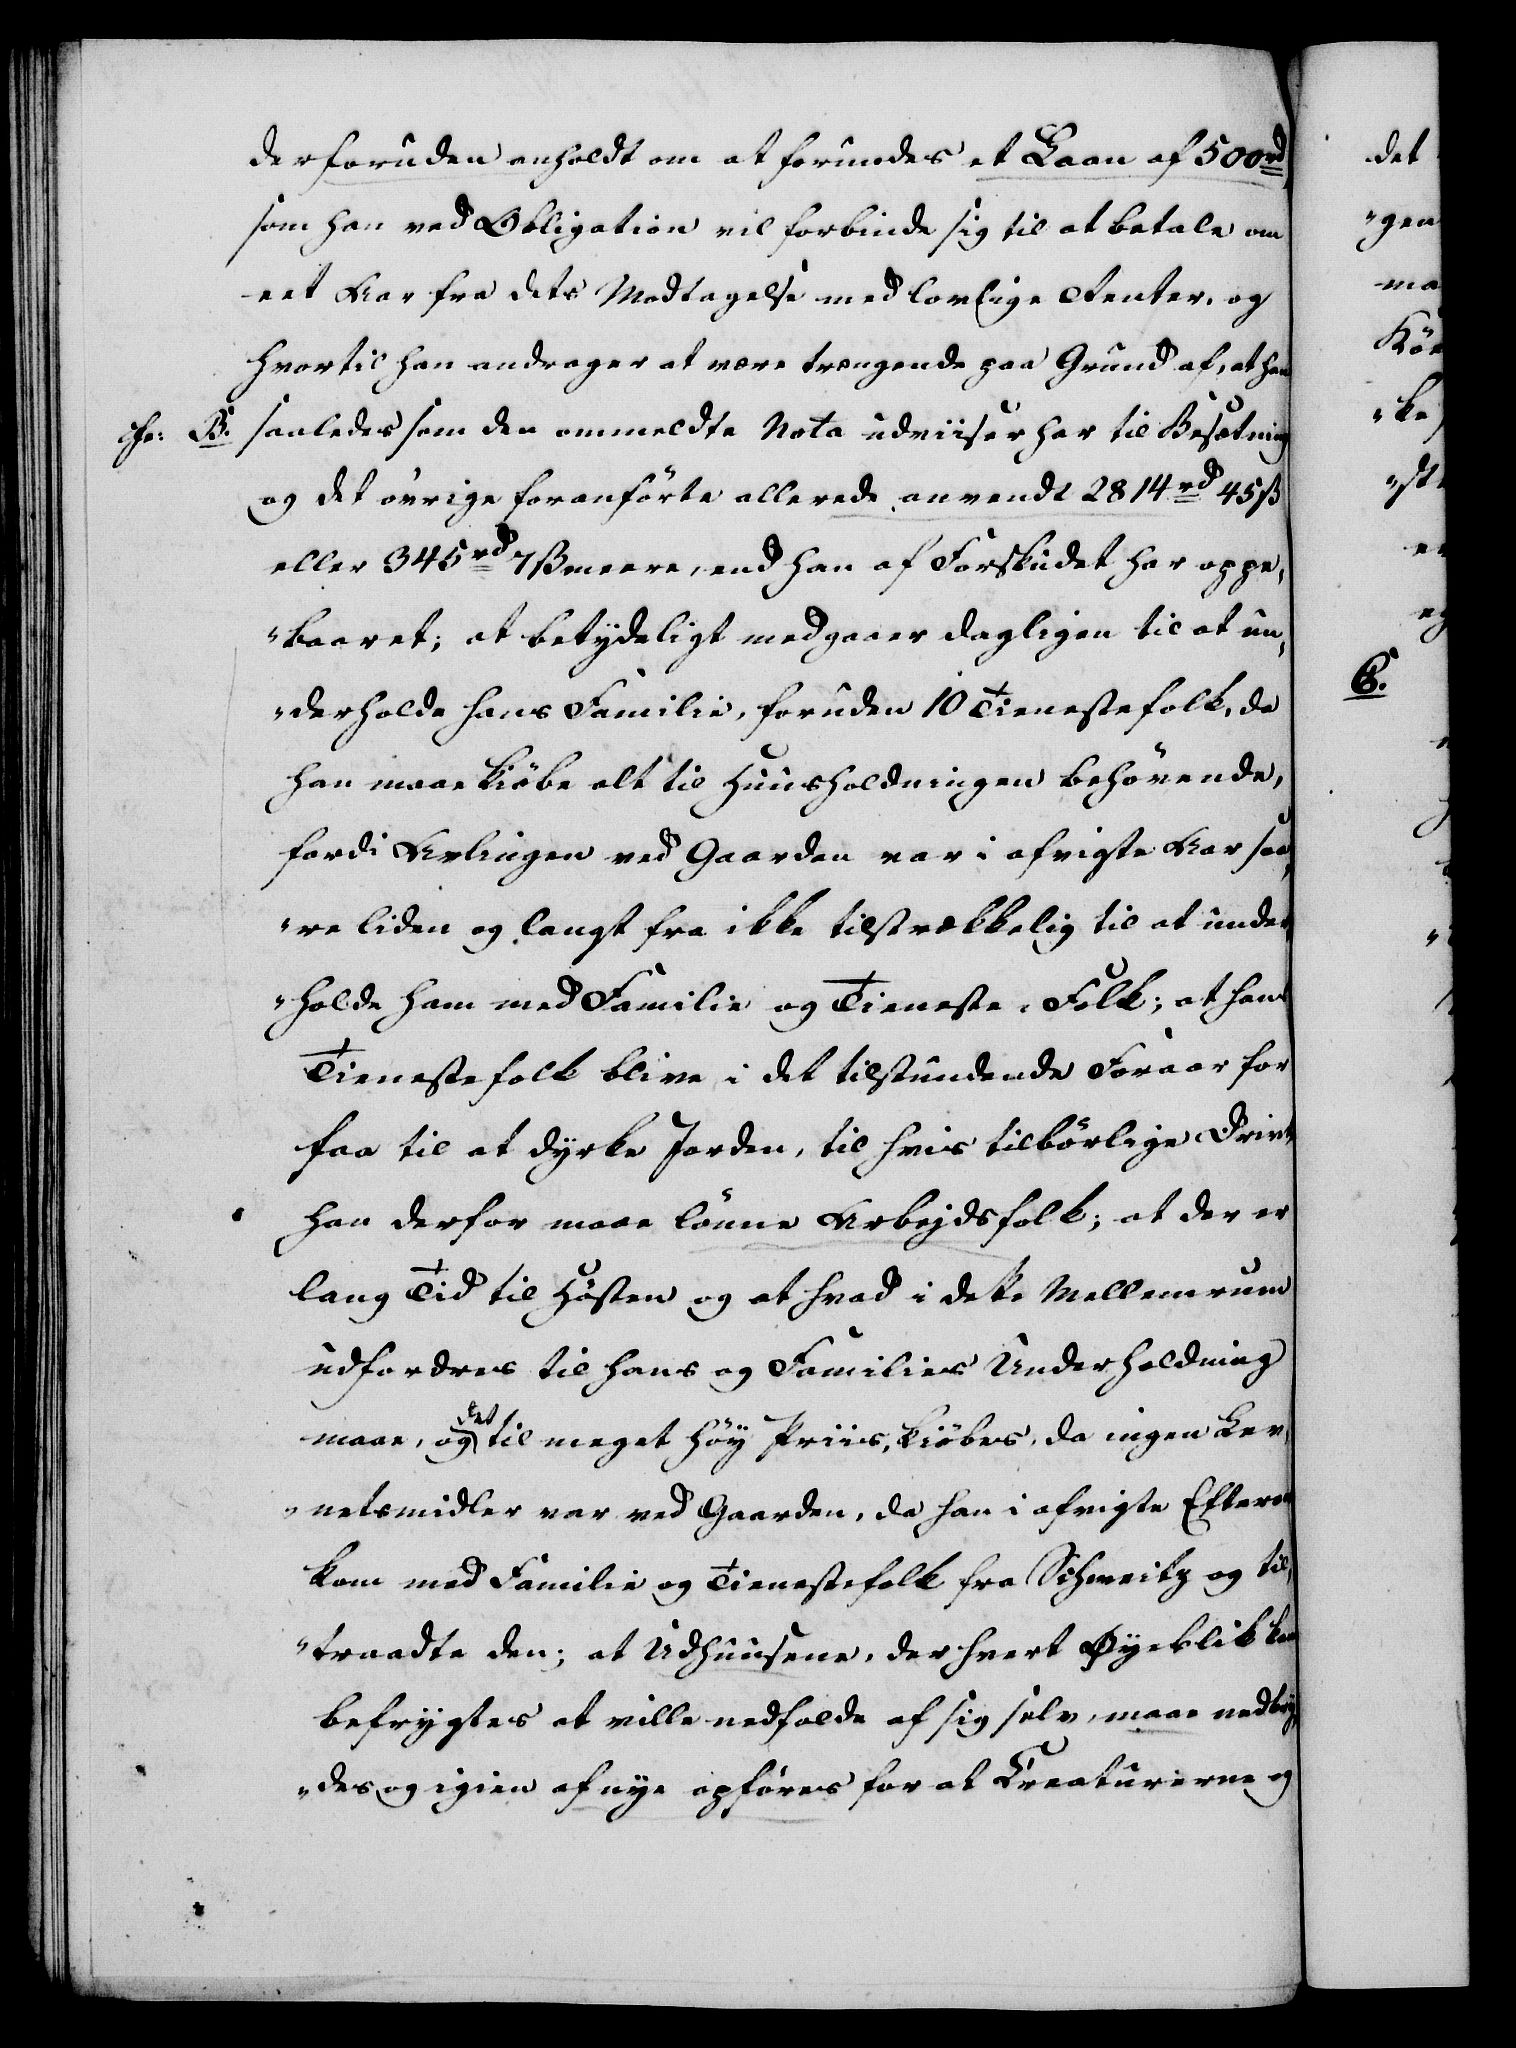 derforuden anholdt om at forundes et Laan af 500rd
som han ved Obligation vil forbinde sig til at betale om
eet Aar fra dets Modtagelse med lovlige Renter, og
hvortil han andrager at være trængende paa Grund af, at han
cfr: B. saaledes som den ommeldte Nota udviiser har til Besætning
og det øvrige foranførte allerede anvendt 2814rd 45ß
eller 345rd 7ß meere, end han af Forskudet har oppe,
"baaret; at betydeligt medgaaer dagligen til at un,
"derholde hans Familie, foruden 10 Tienestefolk, da
han maae kiøbe alt til Huusholdningen behørende,
fordi Avlingen ved Gaarden var i afvigte Aar saa,
"re liden og langt fra ikke tilstrækkelig til at under
"holde ham med Familie og Tieneste-Folk; at hans
Tienestefolk blive i det tilstundende Foraar for
faa til at dyrke Jorden, til hvis tilbørlige Drivt
han derfor maae lønne Arbejdsfolk; at der er
lang Tid til Høsten og at hvad i dette Mellemrum
udfordres til hans og Families Underholdning
maae, og det til meget høy Priis, kiøbes, da ingen Lev,
"netsmidler var ved Gaarden, da han i afvigte Efteraar
kom med Familie og Tienestefolk fra Schweitz og til,
"traadte den; at Udhuusene, der hvert Øyeblik kan
befrygtes at ville nedfalde af sig selv, maae nedbry,
"des og igien af nye opføres for at Creaturerne og
det
"gen
ma
Kør
"ke
C.